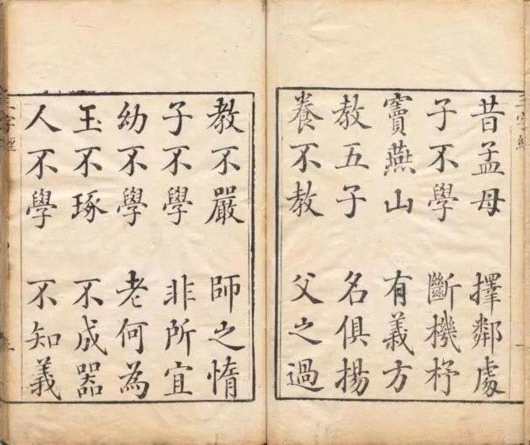 昔孟母　擇鄰處
子不學　斷機杼
竇燕山　有義方
教五子　名俱揚
養不教　父之過
教不嚴　師之惰
子不學　非所宜
幼不學　老何為
玉不琢　不成器
人不學　不知義